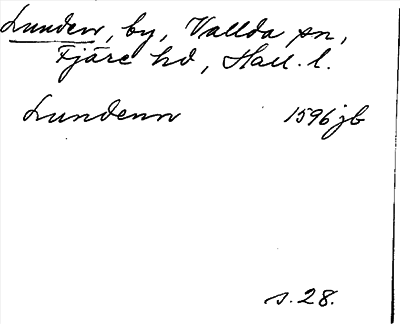 Lunden, by, Vallda sn,
Fjäre hd, Hall. l.
Lundenn 1596 jb
s. 28.